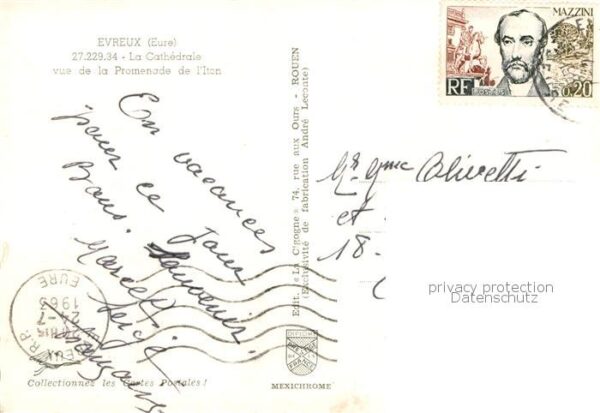 EVREUX (Eure)
27.229.34 - La Cathédrale
vue de la Promenade de l'Iton
MAZZINI
RF POSTES 0,20
En vacances
pour ce jour
Bons Souvenir
Marcelle
Serge
Mr & Mme Olivetti
et
18 -
Edit. « La Cigogne » 74, rue aux Ours - ROUEN
(Exclusivité de fabrication André Leconte)
EVREUX R.P.
24-7
1965
EURE
privacy protection
Datenschutz
Collectionnez les Cartes Postales !
MEXICHROME